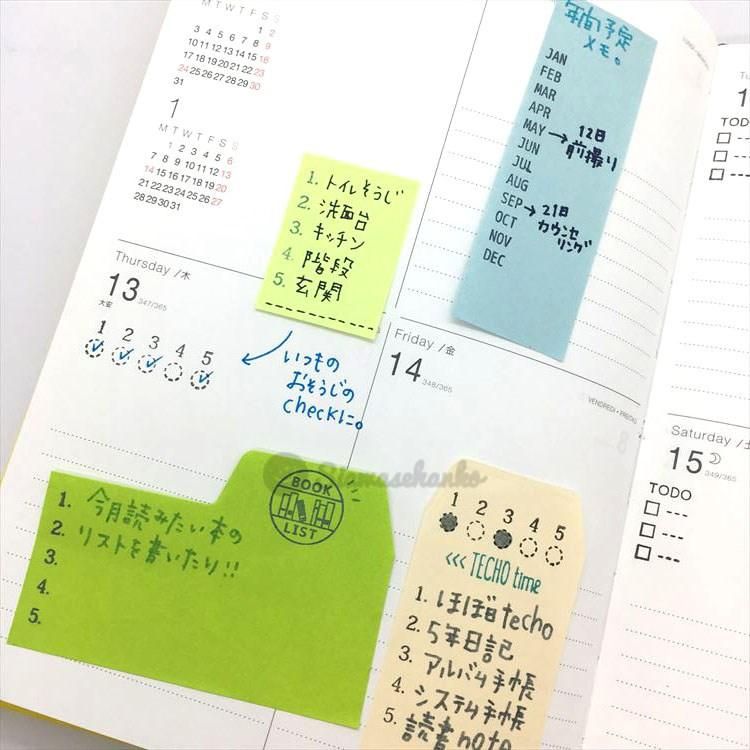 M T W T F S S
1 2
3 4 5 6 7 8 9
10 11 12 13 14 15 16
17 18 19 20 21 22 23
24 25 26 27 28 29 30
31
1
M T W T F S S
1 2 3 4 5 6
7 8 9 10 11 12 13
14 15 16 17 18 19 20
21 22 23 24 25 26 27
28 29 30 31
年間予定
メモ。
JAN
FEB
MAR
APR
MAY → 12日
前撮り
JUN
JUL
AUG
SEP → 21日
カウンセ
リング
OCT
NOV
DEC
1. トイレそうじ
2. 洗面台
3. キッチン
4. 階段
5. 玄関
Thursday /木
13 347/365
大安
1 2 3 4 5
いつもの
おそうじの
checkに。
Friday /金
14 348/365
VENDREDI • FREITAG
TODO
Saturday /土
15 349/365
TODO
Siamasekanko
BOOK
LIST
1. 今月読みたい本の
2. リストを書いたり!!
3.
4.
5.
1 2 3 4 5
<<< TECHO time
1. ほぼ日techo
2. 5年日記
3. アルバム手帳
4. システム手帳
5. 読書note